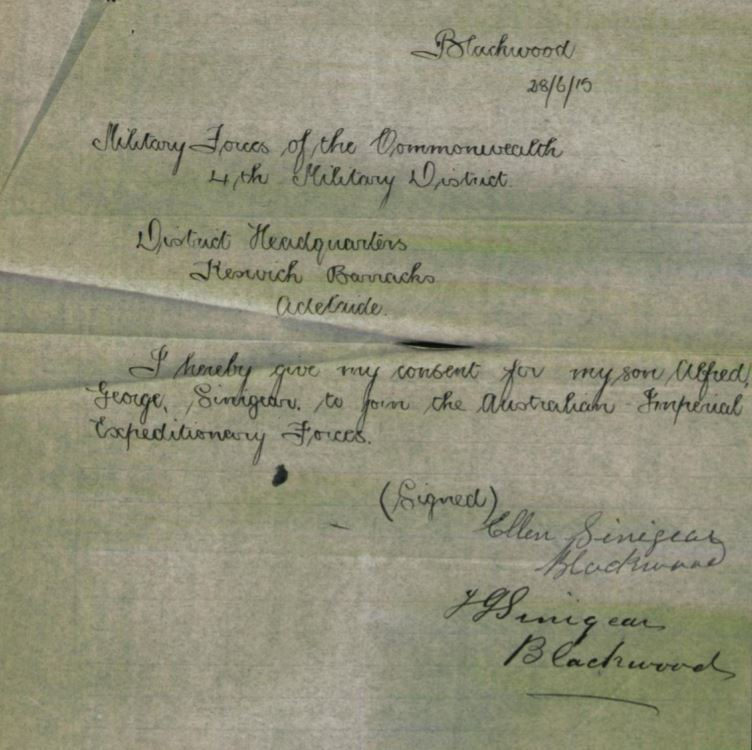 Blackwood
28/6/15
Military Forces of the Commonwealth
4th Military District.
District Headquarters
Keswick Barracks
Adelaide.
I hereby give my consent for my son Alfred,
George, Sinigear, to join the Australian Imperial
Expeditionary Forces.
(Signed)
Ellen Sinigear
Blackwood
F G Sinigear
Blackwood